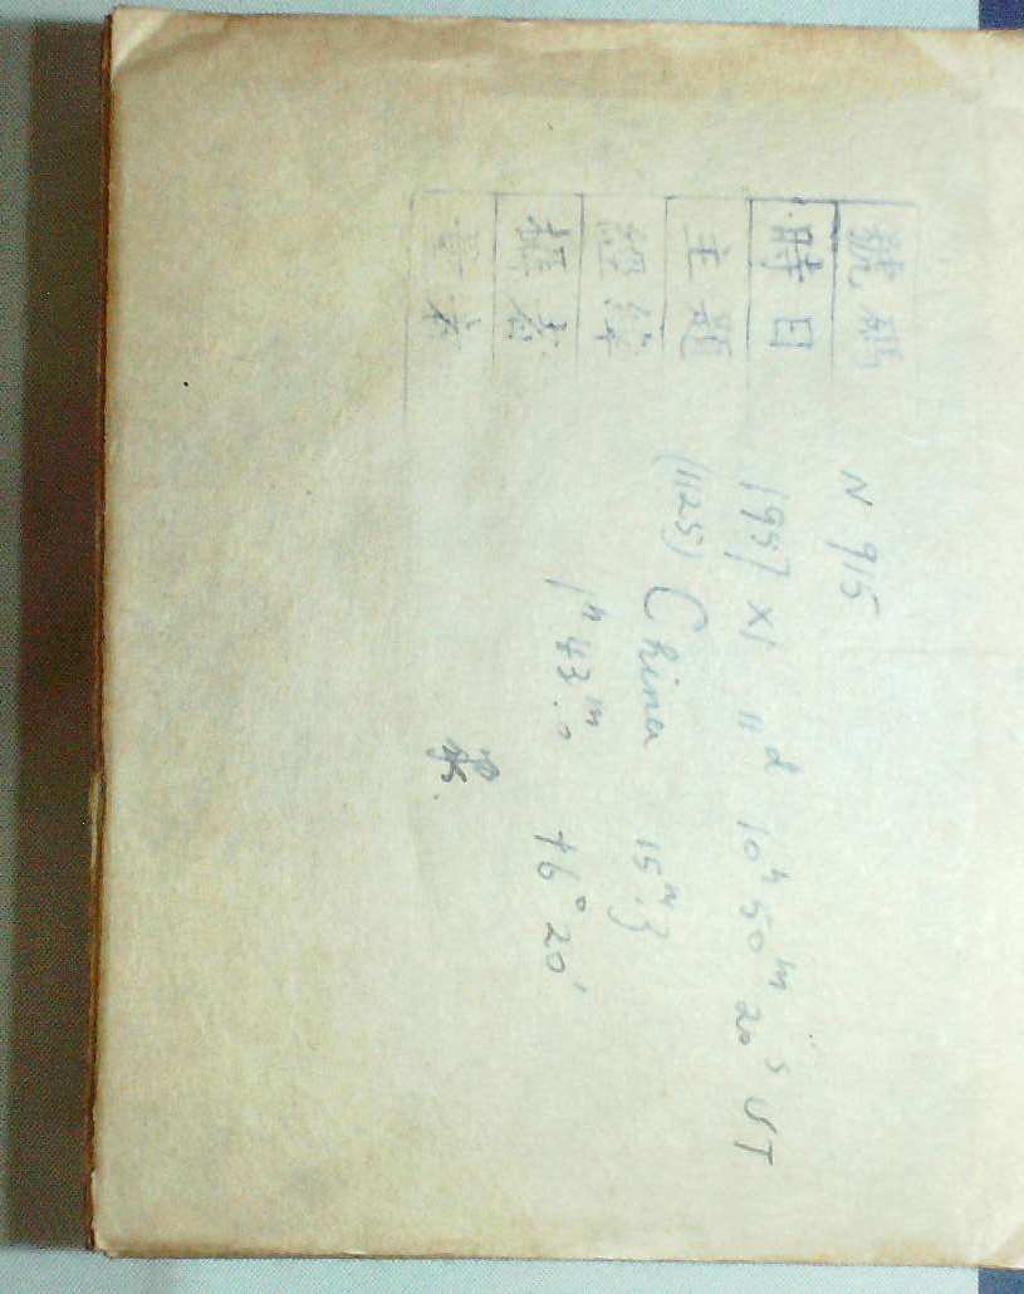 號碼 N 915
時日 1957 XI 11ᵈ 10ʰ 50ᵐ 20ˢ UT
主題 (1125) China 15ᵐ.3
1ʰ 43ᵐ.0 +6° 20′
攝者